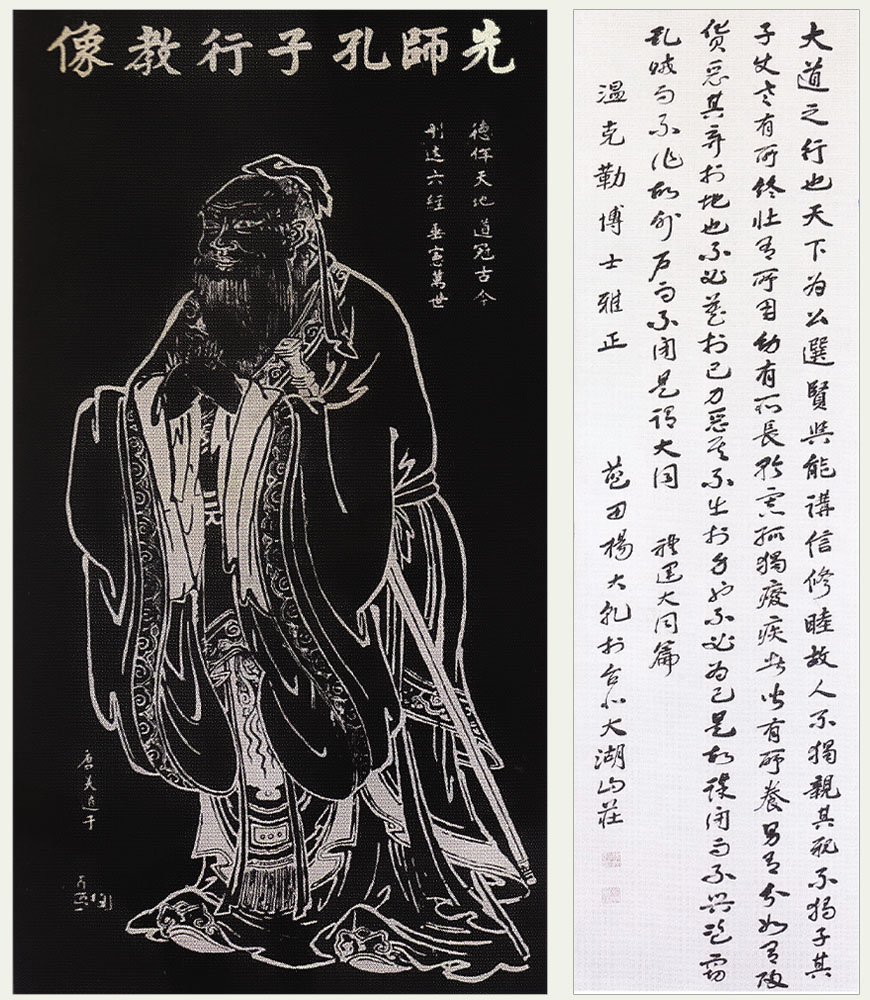 先師孔子行教像
德侔天地道冠古今
刪述六經垂憲萬世
唐吴道子
大道之行也天下為公選賢與能講信修睦故人不獨親其親不獨子其
子使老有所終壯有所用幼有所長矜寡孤獨廢疾者皆有所養男有分女有歸
貨惡其棄於地也不必藏於己力惡其不出於身也不必為己是故謀閉而不興盜竊
亂賊而不作故外戶而不閉是謂大同 禮運大同篇
溫克勒博士雅正 莆田楊大於台北大湖山莊